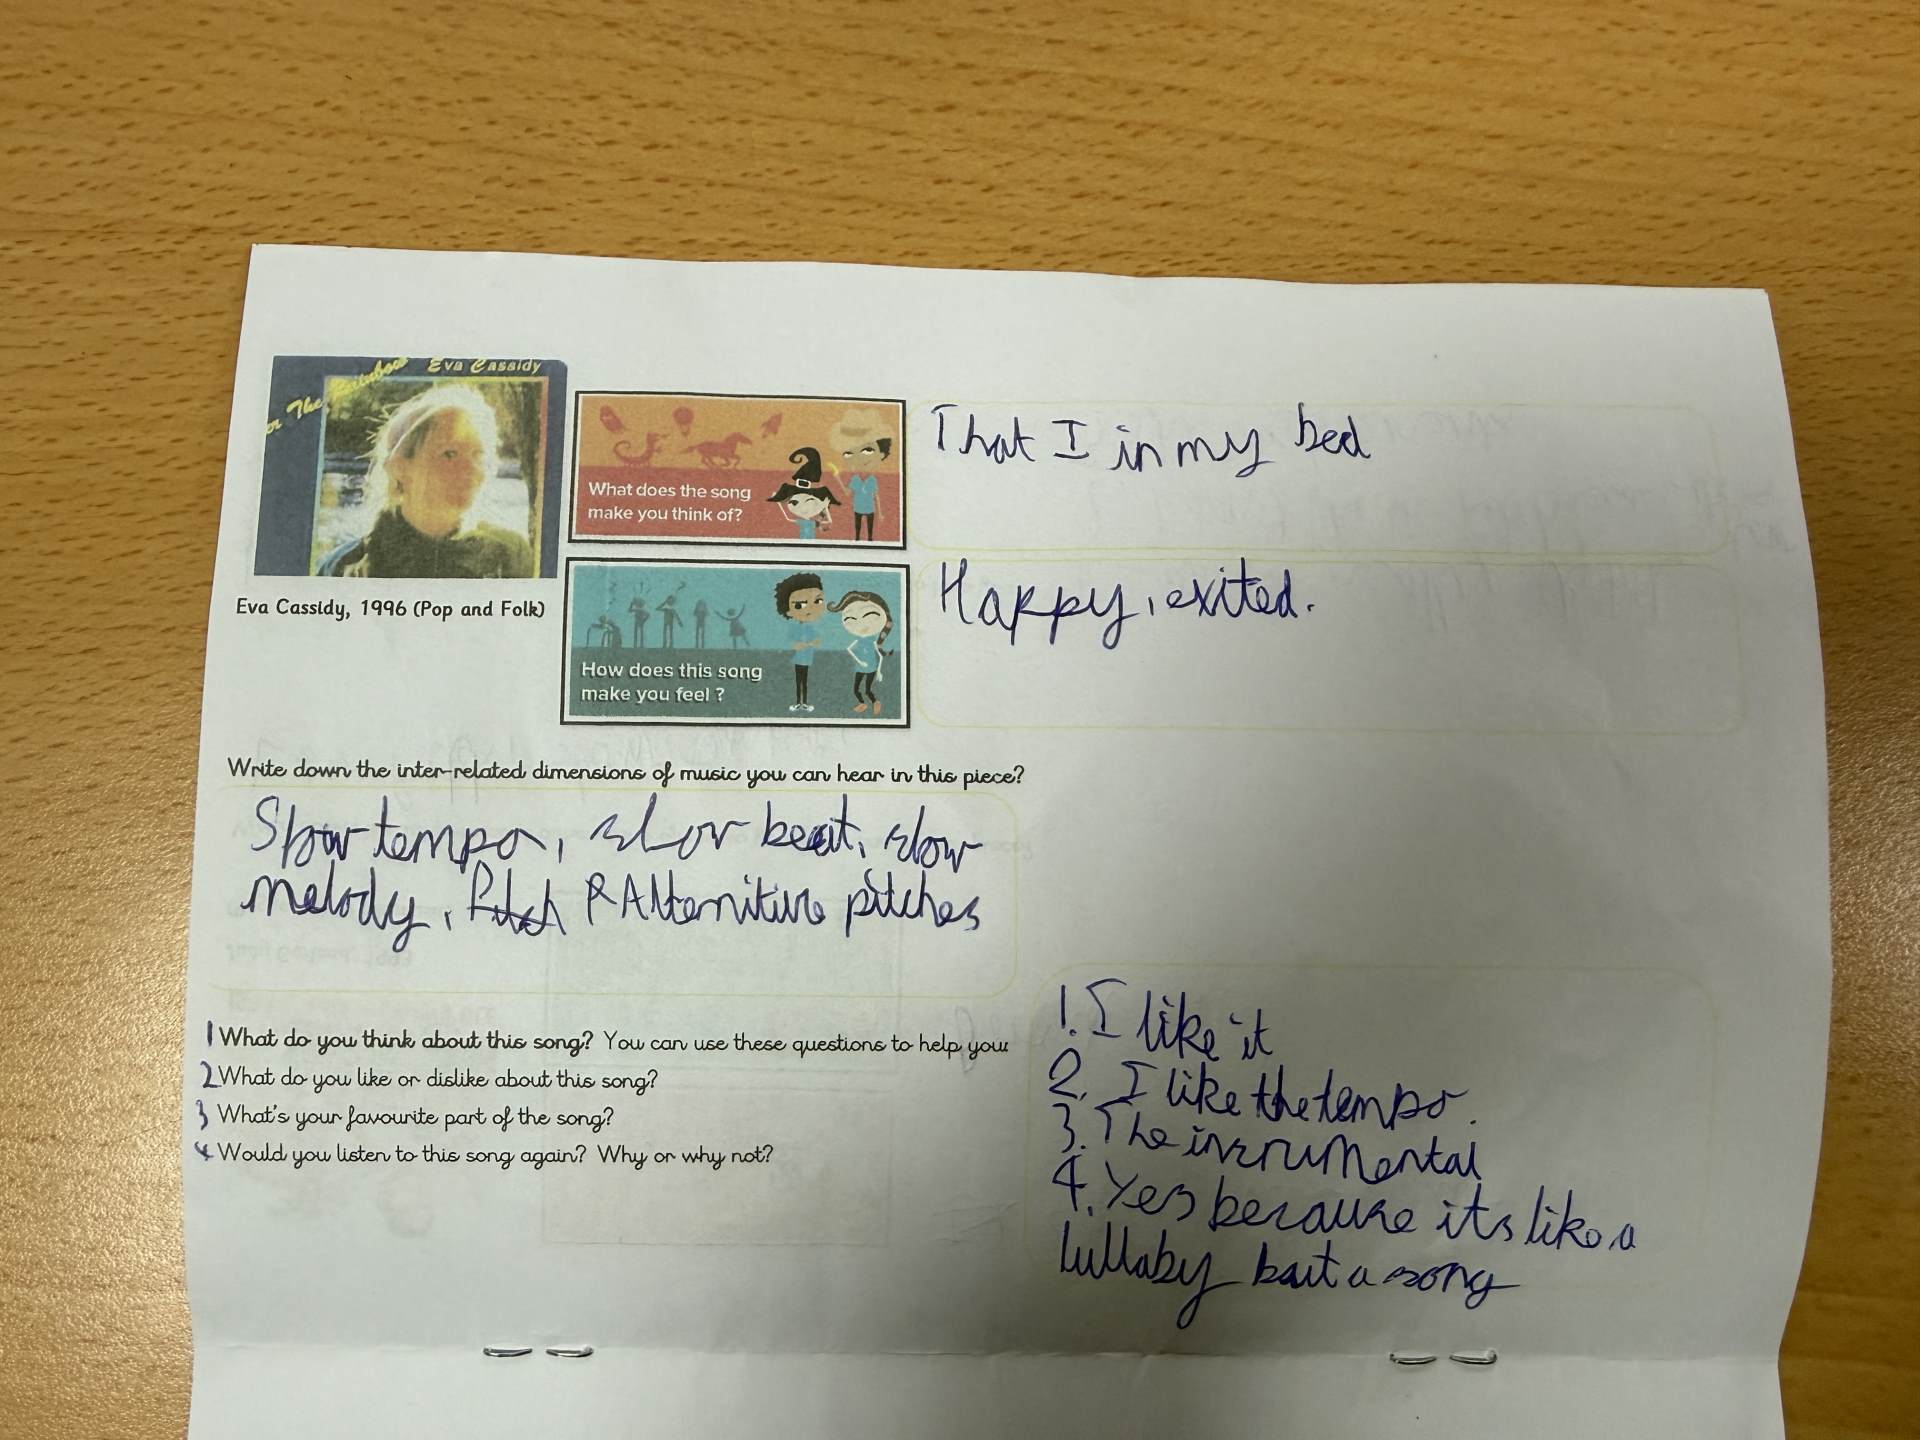 er The Rainbow Eva Cassidy
Eva Cassidy, 1996 (Pop and Folk)
What does the song
make you think of?
That I in my bed
How does this song
make you feel ?
Happy, exited.
Write down the inter-related dimensions of music you can hear in this piece?
Slow tempo, slow beat, slow
melody, Pitch P Alternitive pitches
1 What do you think about this song? You can use these questions to help you:
2 What do you like or dislike about this song?
3 What's your favourite part of the song?
4 Would you listen to this song again? Why or why not?
1. I like it
2. I like the tempo.
3. The insrumental
4. Yes because its like a
lullaby but a song